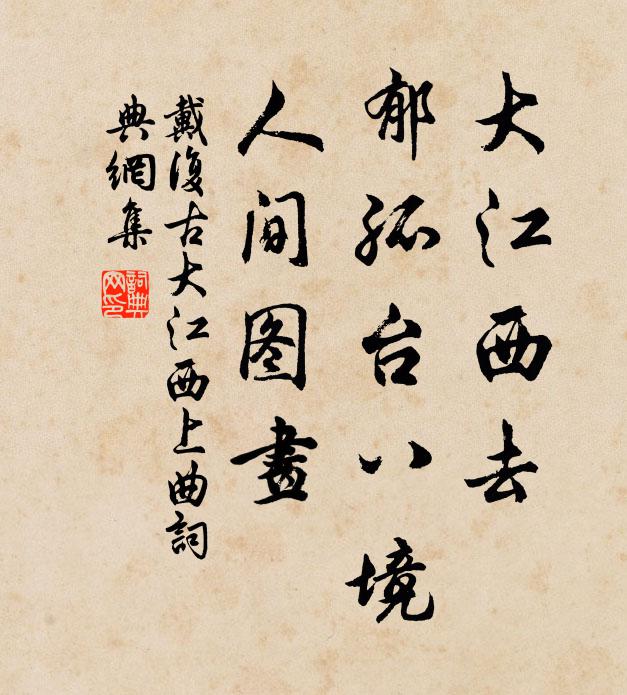 大江西去
郁孤台八境
人间图畫
戴復古大江西上曲詞
典網集
詞典
网印